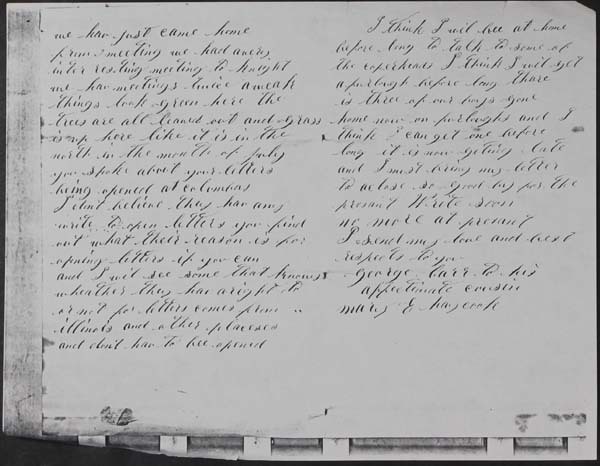 we hav just came home
from meeting we had a very
inter resting meeting to knight
we hav meetings twice a weak
things look green here the
trees are all leaved out and grass
is up here like it is in the
north in the month of July
you spoke about your letters
being opened at columbas
I dont believe they hav any
write to open letters you find
out what their reason is for
opning letters if you can
and I wil see some that knows
wheather they hav a right to
or not for letters comes from
illinois and other placeses
and dont hav to bee opened
I think I wil bee at home
before long to talk to some of
the coperheads I think I wil get
a furlough before long thare
is three of our boys gone
home now on furloughs and I
think I can get one before
long it is now geting late
and I must bring my letter
to a close so good by for the
presant Write soon
no more at presant
I send my love and best
respects to you
George Carr to his
affectinate cousin
mary E haycook